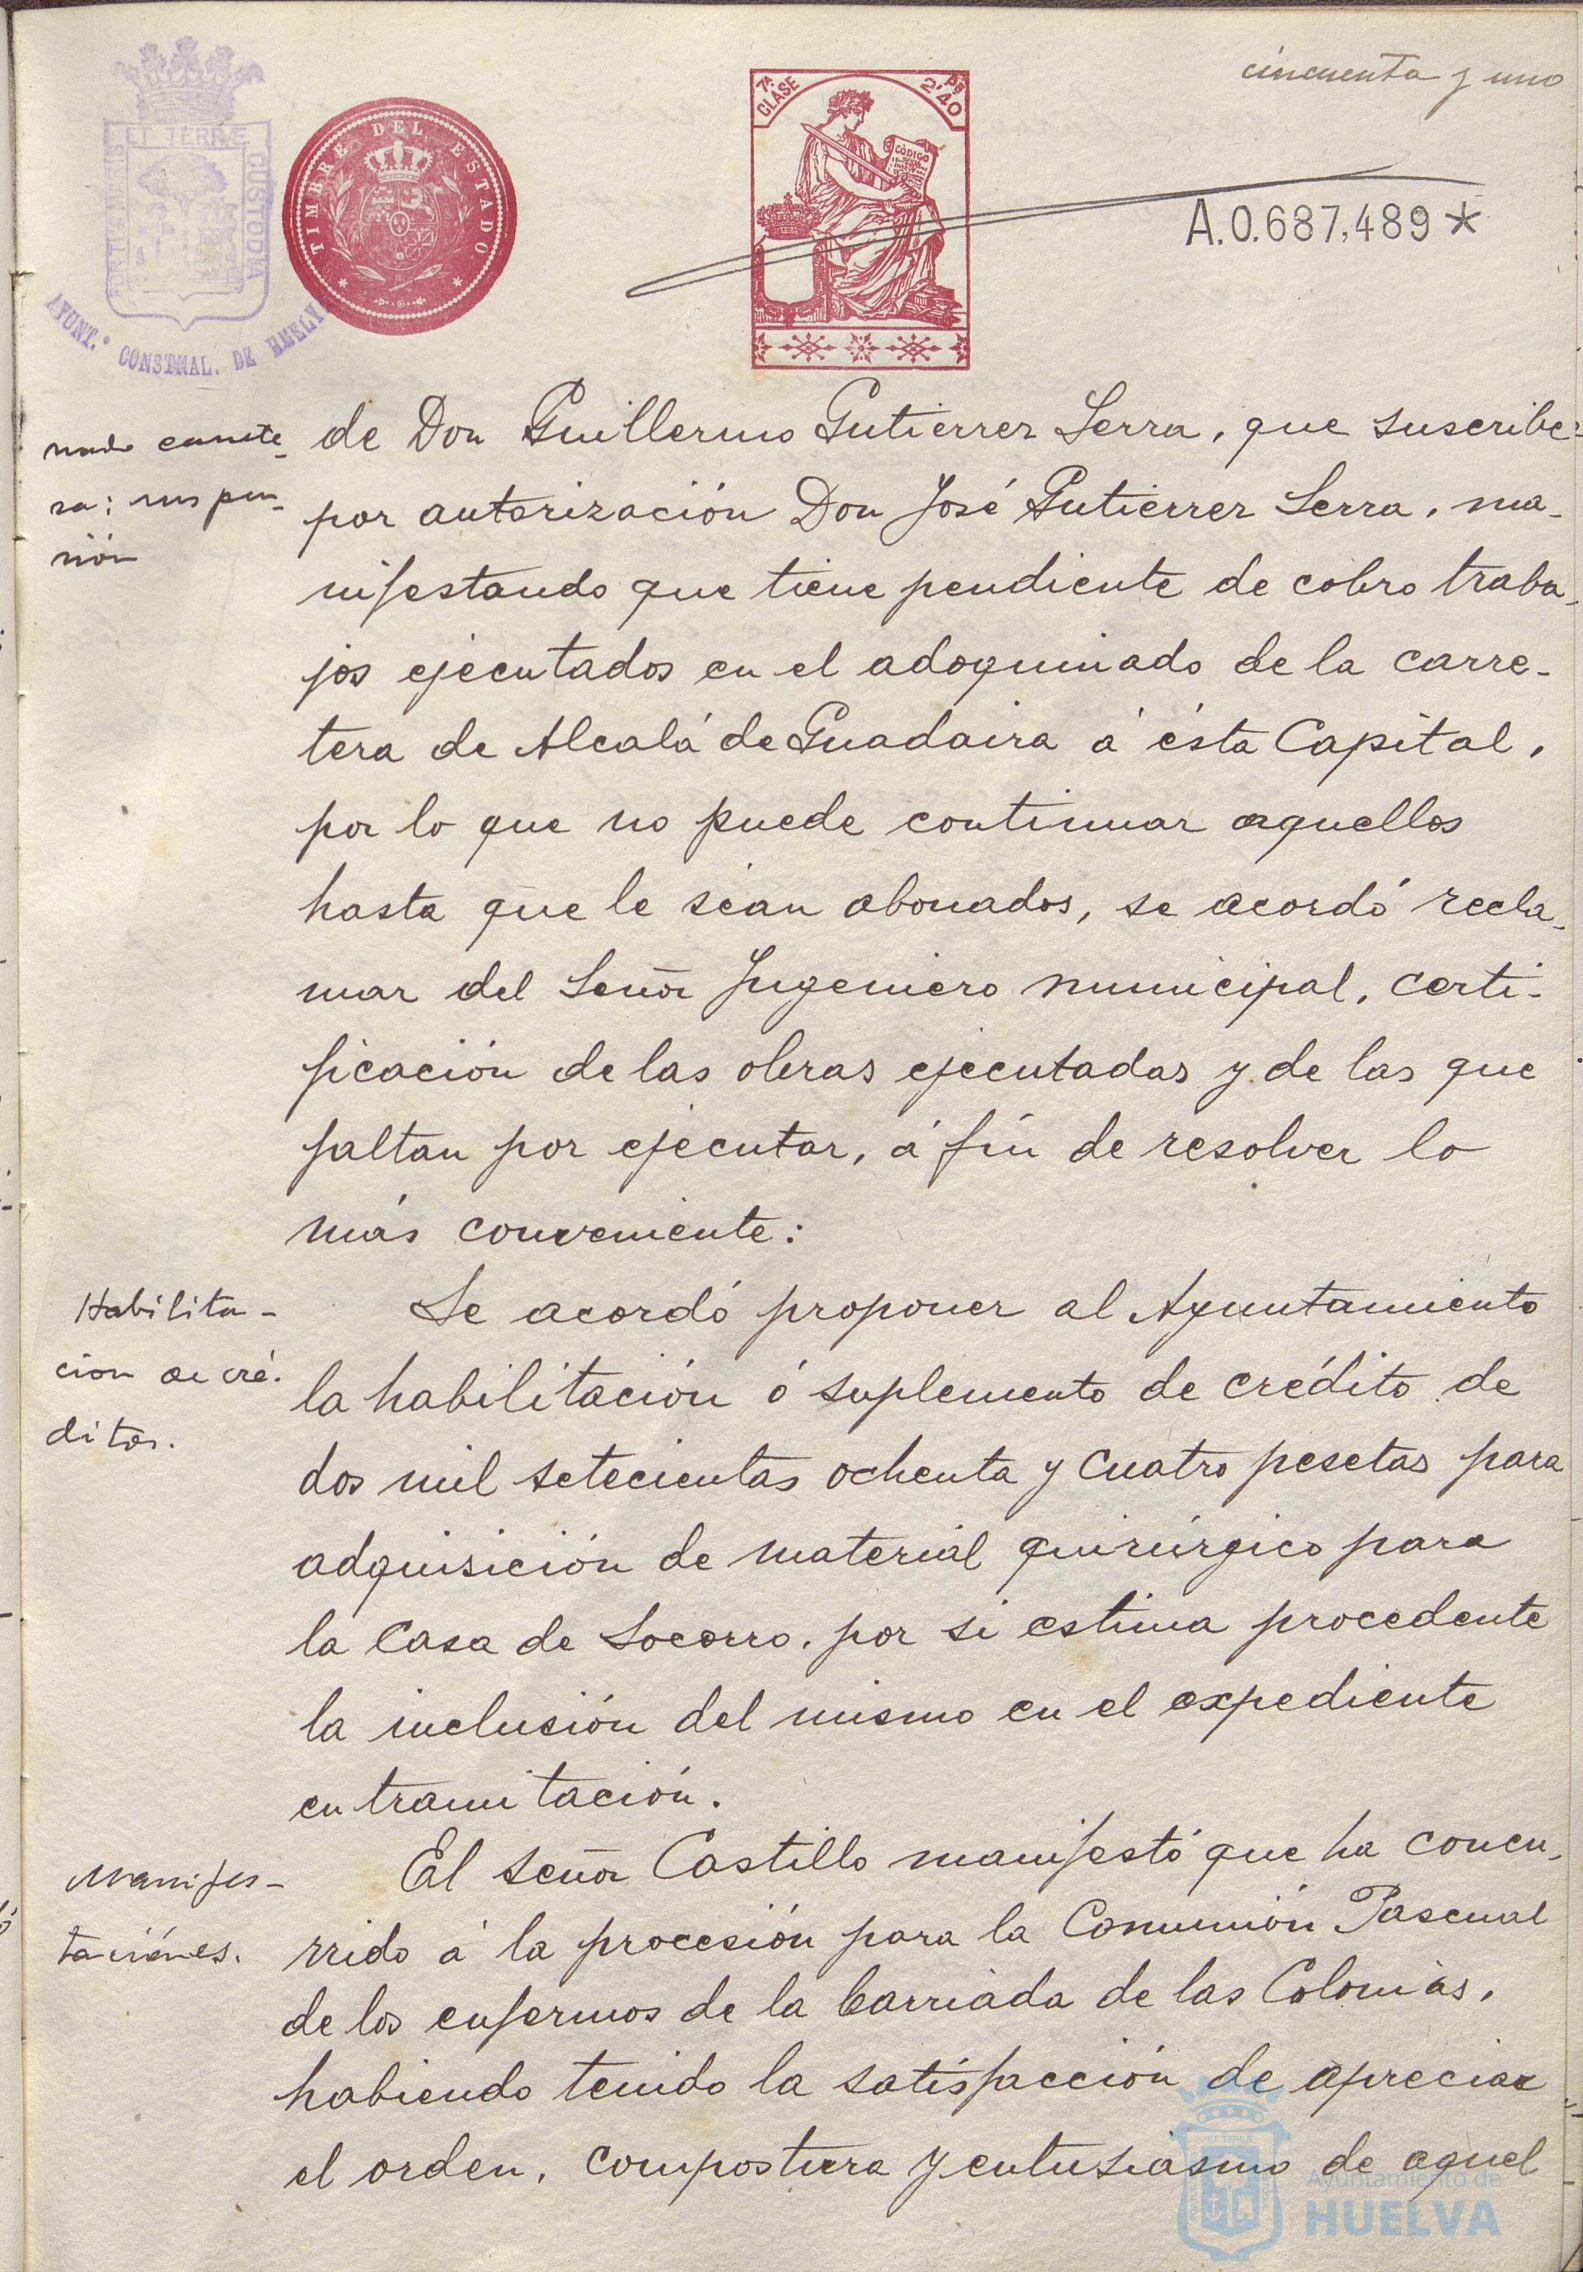 cincuenta y uno
PORTUS MARIS ET TERRÆ CUSTODIA
AYUNT.º CONSTNAL. DE HUELVA
TIMBRE DEL ESTADO
7ª CLASE
2'40
CÓDIGO
A.0.687,489*
nado carrete-
ra: suspen-
sión
de Don Guillermo Gutierrez Serra, que suscribe
por autorización Don José Gutierrez Serra, ma-
nifestando que tiene pendiente de cobro traba-
jos ejecutados en el adoquinado de la carre-
tera de Alcalá de Guadaira á ésta Capital,
por lo que no puede continuar aquellos
hasta que le sean abonados, se acordó recla-
mar del Señor Ingeniero municipal, certi-
ficación de las obras ejecutadas y de las que
faltan por ejecutar, á fin de resolver lo
más conveniente:
Habilita-
cion de cré-
ditos.
Se acordó proponer al Ayuntamiento
la habilitación ó suplemento de crédito de
dos mil setecientas ochenta y cuatro pesetas para
adquisición de material quirúrgico para
la Casa de Socorro, por si estima procedente
la inclusión del mismo en el expediente
en tramitación.
Manifes-
taciónes.
El señor Castillo manifestó que ha concu-
rrido á la procesión para la Comunión Pascual
de los enfermos de la barriada de las Colonias,
habiendo tenido la satisfacción de apreciar
el orden, compostura y entusiasmo de aquel
Ayuntamiento de
HUELVA